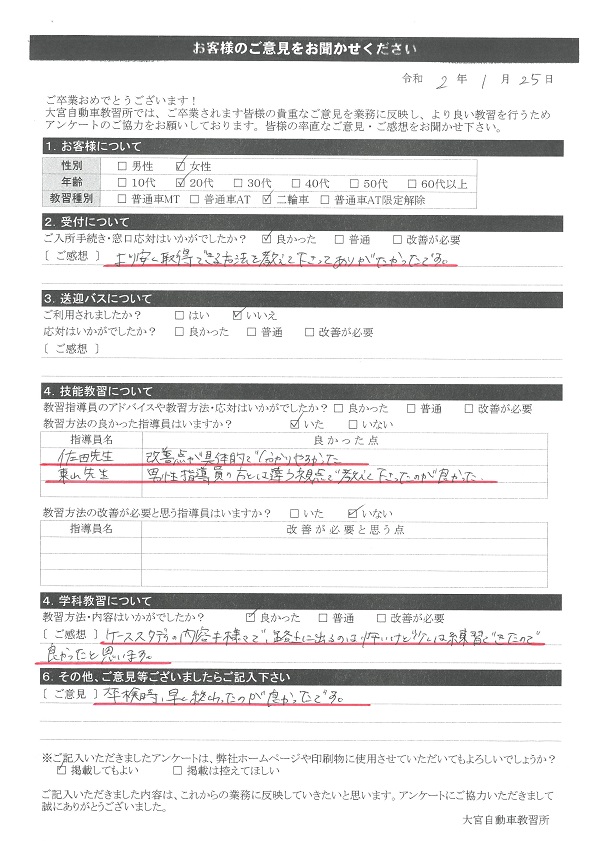 お客様のご意見をお聞かせください
令和 2 年 1 月 25 日
ご卒業おめでとうございます！
大宮自動車教習所では、ご卒業されます皆様の貴重なご意見を業務に反映し、より良い教習を行うため
アンケートのご協力をお願いしております。皆様の率直なご意見・ご感想をお聞かせ下さい。
1. お客様について
性別 □ 男性 ☑ 女性
年齢 □ 10代 ☑ 20代 □ 30代 □ 40代 □ 50代 □ 60代以上
教習種別 □ 普通車MT □ 普通車AT ☑ 二輪車 □ 普通車AT限定解除
2. 受付について
ご入所手続き・窓口応対はいかがでしたか？ ☑ 良かった □ 普通 □ 改善が必要
[ ご感想 ] より安く取得できる方法を教えて下さってありがたかったです。
3. 送迎バスについて
ご利用されましたか？ □ はい ☑ いいえ
応対はいかがでしたか？ □ 良かった □ 普通 □ 改善が必要
[ ご感想 ]
4. 技能教習について
教習指導員のアドバイスや教習方法・応対はいかがでしたか？ □ 良かった □ 普通 □ 改善が必要
教習方法の良かった指導員はいますか？ ☑ いた □ いない
指導員名 良かった点
佐田先生 改善点が具体的で分かりやすかった
東山先生 男性指導員の方とは違う視点で教えて下さったのが良かった。
教習方法の改善が必要と思う指導員はいますか？ □ いた ☑ いない
指導員名 改善が必要と思う点
4. 学科教習について
教習方法・内容はいかがでしたか？ ☑ 良かった □ 普通 □ 改善が必要
[ ご感想 ] ケーススタディの内容も様々で、路上に出るのは
練習できたので
良かったと思います。
6. その他、ご意見等ございましたらご記入下さい
[ ご意見 ] 卒検時、早く終わったのが良かったです。
※ご記入いただきましたアンケートは、弊社ホームページや印刷物に使用させていただいてもよろしいでしょうか？
☑ 掲載してもよい □ 掲載は控えてほしい
ご記入いただきました内容は、これからの業務に反映していきたいと思います。アンケートにご協力いただきまして
誠にありがとうございました。
大宮自動車教習所